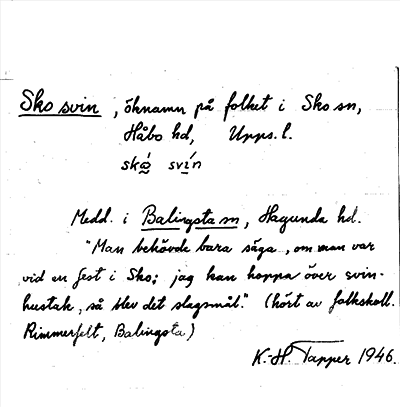 Sko svin, öknamn på folket i Sko sn,
Håbo hd, Upps. l.
skó svín
Medd. i Balingsta sn, Hagunda hd.
"Man behövde bara säga, om man var
vid en fest i Sko; jag kan hoppa över svin-
hustak, så blev det slagsmål." (hört av folkskoll.
Rimmerfelt, Balingsta)
K.-H. Tapper 1946.